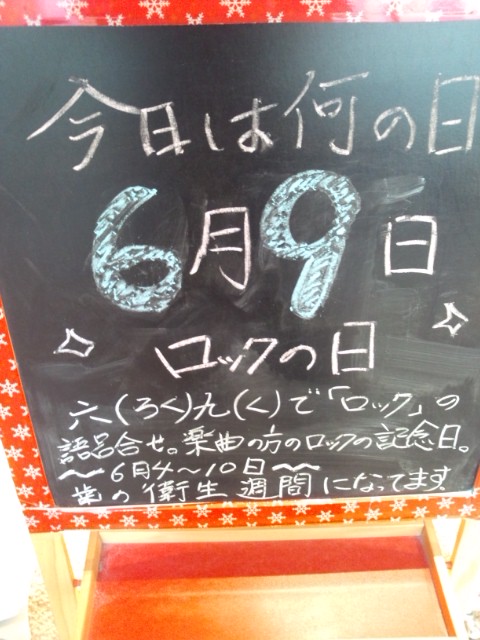 今日は何の日
6月9日
ロックの日
六(ろく)九(く)で「ロック」の
語呂合せ。楽曲の方のロックの記念日。
〜6月4〜10日〜
歯の衛生週間になってます